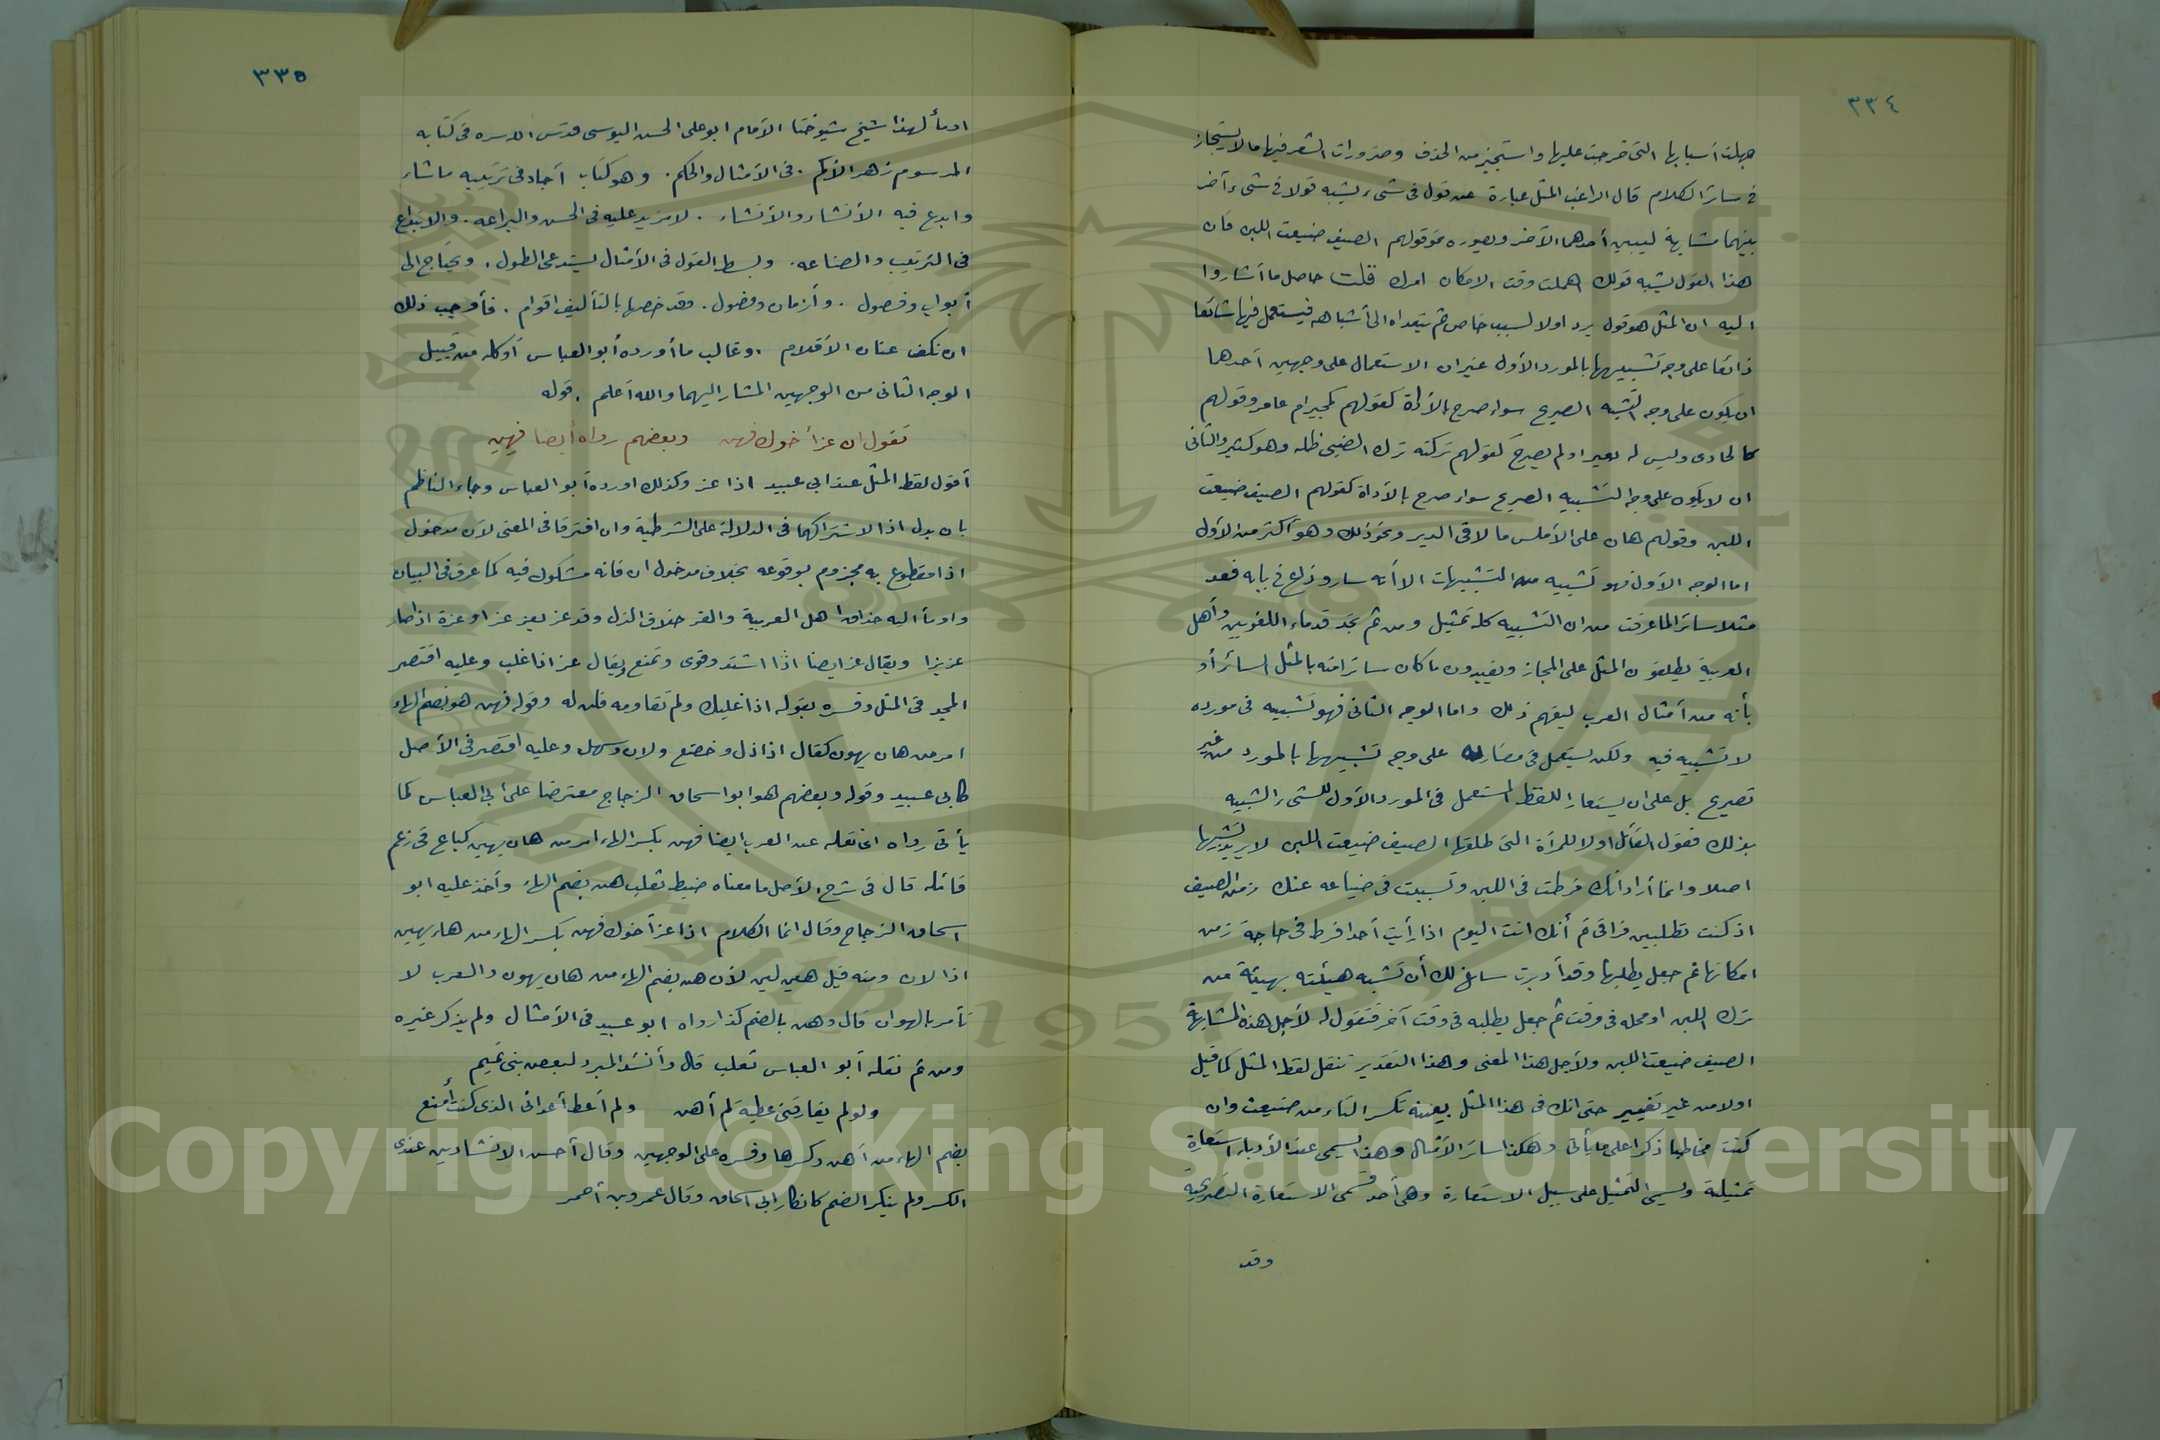 ٣٣٤
جهلت أسبابها التى خرجت عليها واستجيز من الحذف وضرورات الشعر فيها ما لا يستجاز
فى سائر الكلام قال الراغب المثل عبارة عن قول فى شىء يشبه قولا فى شىء آخر
بينهما مشابهة ليبين أحدهما الآخر ويصوره نحو قولهم الصيف ضيعت اللبن فان
هذا القول يشبه قولك أهملت وقت الامكان امرك قلت حاصل ما أشاروا
اليه ان المثل هو قول يرد اولا لسبب خاص ثم يتعداه الى أشباهه فيستعمل فيها شائعا
ذائعا على وجه تشبيهها بالمورد الأول غير ان الاستعمال على وجهين أحدهما
ان يكون على وجه التشبيه الصريح سواء صرح بالأداة كقولهم كمجير ام عامر وقولهم
كالحادى وليس له بعير او لم يصرح كقولهم تركته ترك الضبى ظله وهو كثير والثانى
ان لا يكون على وجه التشبيه الصريح سواء صرح بالأداة كقولهم الصيف ضيعت
اللبن وقولهم هان على الأملس ما لاقى الدبر ونحو ذلك وهو أكثر من الأول
اما الوجه الأول فهو تشبيه من التشبيهات الا أنه سار وذاع فى بابه فعد
مثلا سائرا لما عرفت من ان التشبيه كله تمثيل ومن ثم تجد قدماء اللغويين وأهل
العربية يطلقون المثل على المجاز ويقيدون ما كان سائرا منه بالمثل السائر أو
بأنه من أمثال العرب ليفهم ذلك واما الوجه الثانى فهو تشبيه فى مورده
لا تشبيه فيه ولكن يستعمل فى مضاربه على وجه تشبيهها بالمورد من غير
تصريح بل على ان يستعار اللفظ المستعمل فى المورد الأول للشىء الشبيه
بذلك فقول القائل اولا للمرأة التى طلقها الصيف ضيعت اللبن لا يريد تشبيها
اصلا وانما أراد انك فرطت فى اللبن وتسببت فى ضياعه عنك زمن الصيف
اذ كنت تطلبين فراقى ثم أنك انت اليوم اذا رأيت أحدا فرط فى حاجة زمن
امكانها ثم جعل يطلبها وقد أدبرت ساغ لك أن تشبه هيئته بهيئة من
ترك اللبن او محله فى وقت ثم جعل يطلبه فى وقت آخر فتقول له لأجل هذه المشابهة
الصيف ضيعت اللبن ولأجل هذا المعنى وهذا التقدير تنقل لفظ المثل كما قيل
اولا من غير تغيير حتى انك فى هذا المثل بعينه تكسر التاء من ضيعت وان
كنت مخاطبا ذكرا على ما يأتى وهكذا سائر الأمثال وهذا يسمى عند الأدباء استعارة
تمثيلية ويسمى التمثيل على سبيل الاستعارة وهى أحد قسمى الاستعارة التصريحية
وقد
٣٣٥
اومأ لهذا شيخ شيوخنا الأمام ابو على الحسن اليوسى قدس الله سره فى كتابه
المرسوم زهر الأكم . فى الأمثال والحكم . وهو كتاب أجاد فى ترتيبه ما شاء
وابدع فيه الأنشاء والأنشاء . لا مزيد عليه فى الحسن والبراعه . والابداع
فى الترتيب والصناعه . وبسط القول فى الأمثال يستدعى الطول . ويحتاج الى
أبواب وفصول . وأزمان وفضول . وقد خصها بالتأليف اقوام . فأوجب ذلك
ان نكف عنان الأقلام . وغالب ما أورده أبو العباس أو كله من قبيل
الوجه الثانى من الوجهين المشار اليهما والله أعلم . قوله
تقول ان عز أخوك فهن وبعضهم رواه أيضا فهن
أقول لفظ المثل عند ابى عبيد اذا عز وكذلك اورده أبو العباس وجاء الناظم
بان بدل اذا لاشتراكهما فى الدلالة على الشرطية وان افترقا فى المعنى لأن مدخول
اذا مقطوع به مجزوم بوقوعه بخلاف مدخول ان فانه مشكوك فيه كما عرف فى البيان
واومأ اليه حذاق اهل العربية والعز خلاف الذل وقد عز يعز عزا وعزة اذا صار
عزيزا ويقال عز ايضا اذا اشتد وقوى وتمنع ويقال عز اذا غلب وعليه اقتصر
المجد فى المثل وفسره بقوله اذا غلبك ولم تقاومه فلن له وقوله فهن هو بضم الهاء
امر من هان يهون كقال اذا ذل وخضع ولان وسهل وعليه اقتصر فى الأصل
كابى عبيد وقوله وبعضهم هو ابو اسحاق الزجاج معترضا على ابى العباس كما
يأتى رواه اى نقله عن العرب ايضا فهن بكسر الهاء امر من هان يهين كباع فى زعم
قائله قال فى شرح الأصل ما معناه ضبط ثعلب هن بضم الهاء وأخذ عليه ابو
اسحاق الزجاج وقال انما الكلام اذا عز أخوك فهن بكسر الهاء من هان يهين
اذا لان ومنه قيل هين لين لأن هن بضم الهاء من هان يهون والعرب لا
تأمر بالهوان قال وهن بالضم كذا رواه ابو عبيد فى الأمثال ولم يذكر غيره
ومن ثم نقله أبو العباس ثعلب قال وأنشد المبرد لبعض بنى تميم
ولو لم يفارقنى عطية لم أهن ولم أعط أعدائى الذى كنت أمنع
بضم الهاء من أهن وكسرها وفسره على الوجهين وقال أحسن الانشادين عندى
الكسر ولم ينكر الضم كانكار ابى اسحاق وقال عمرو بن أحمر
Copyright © King Saud University
1957